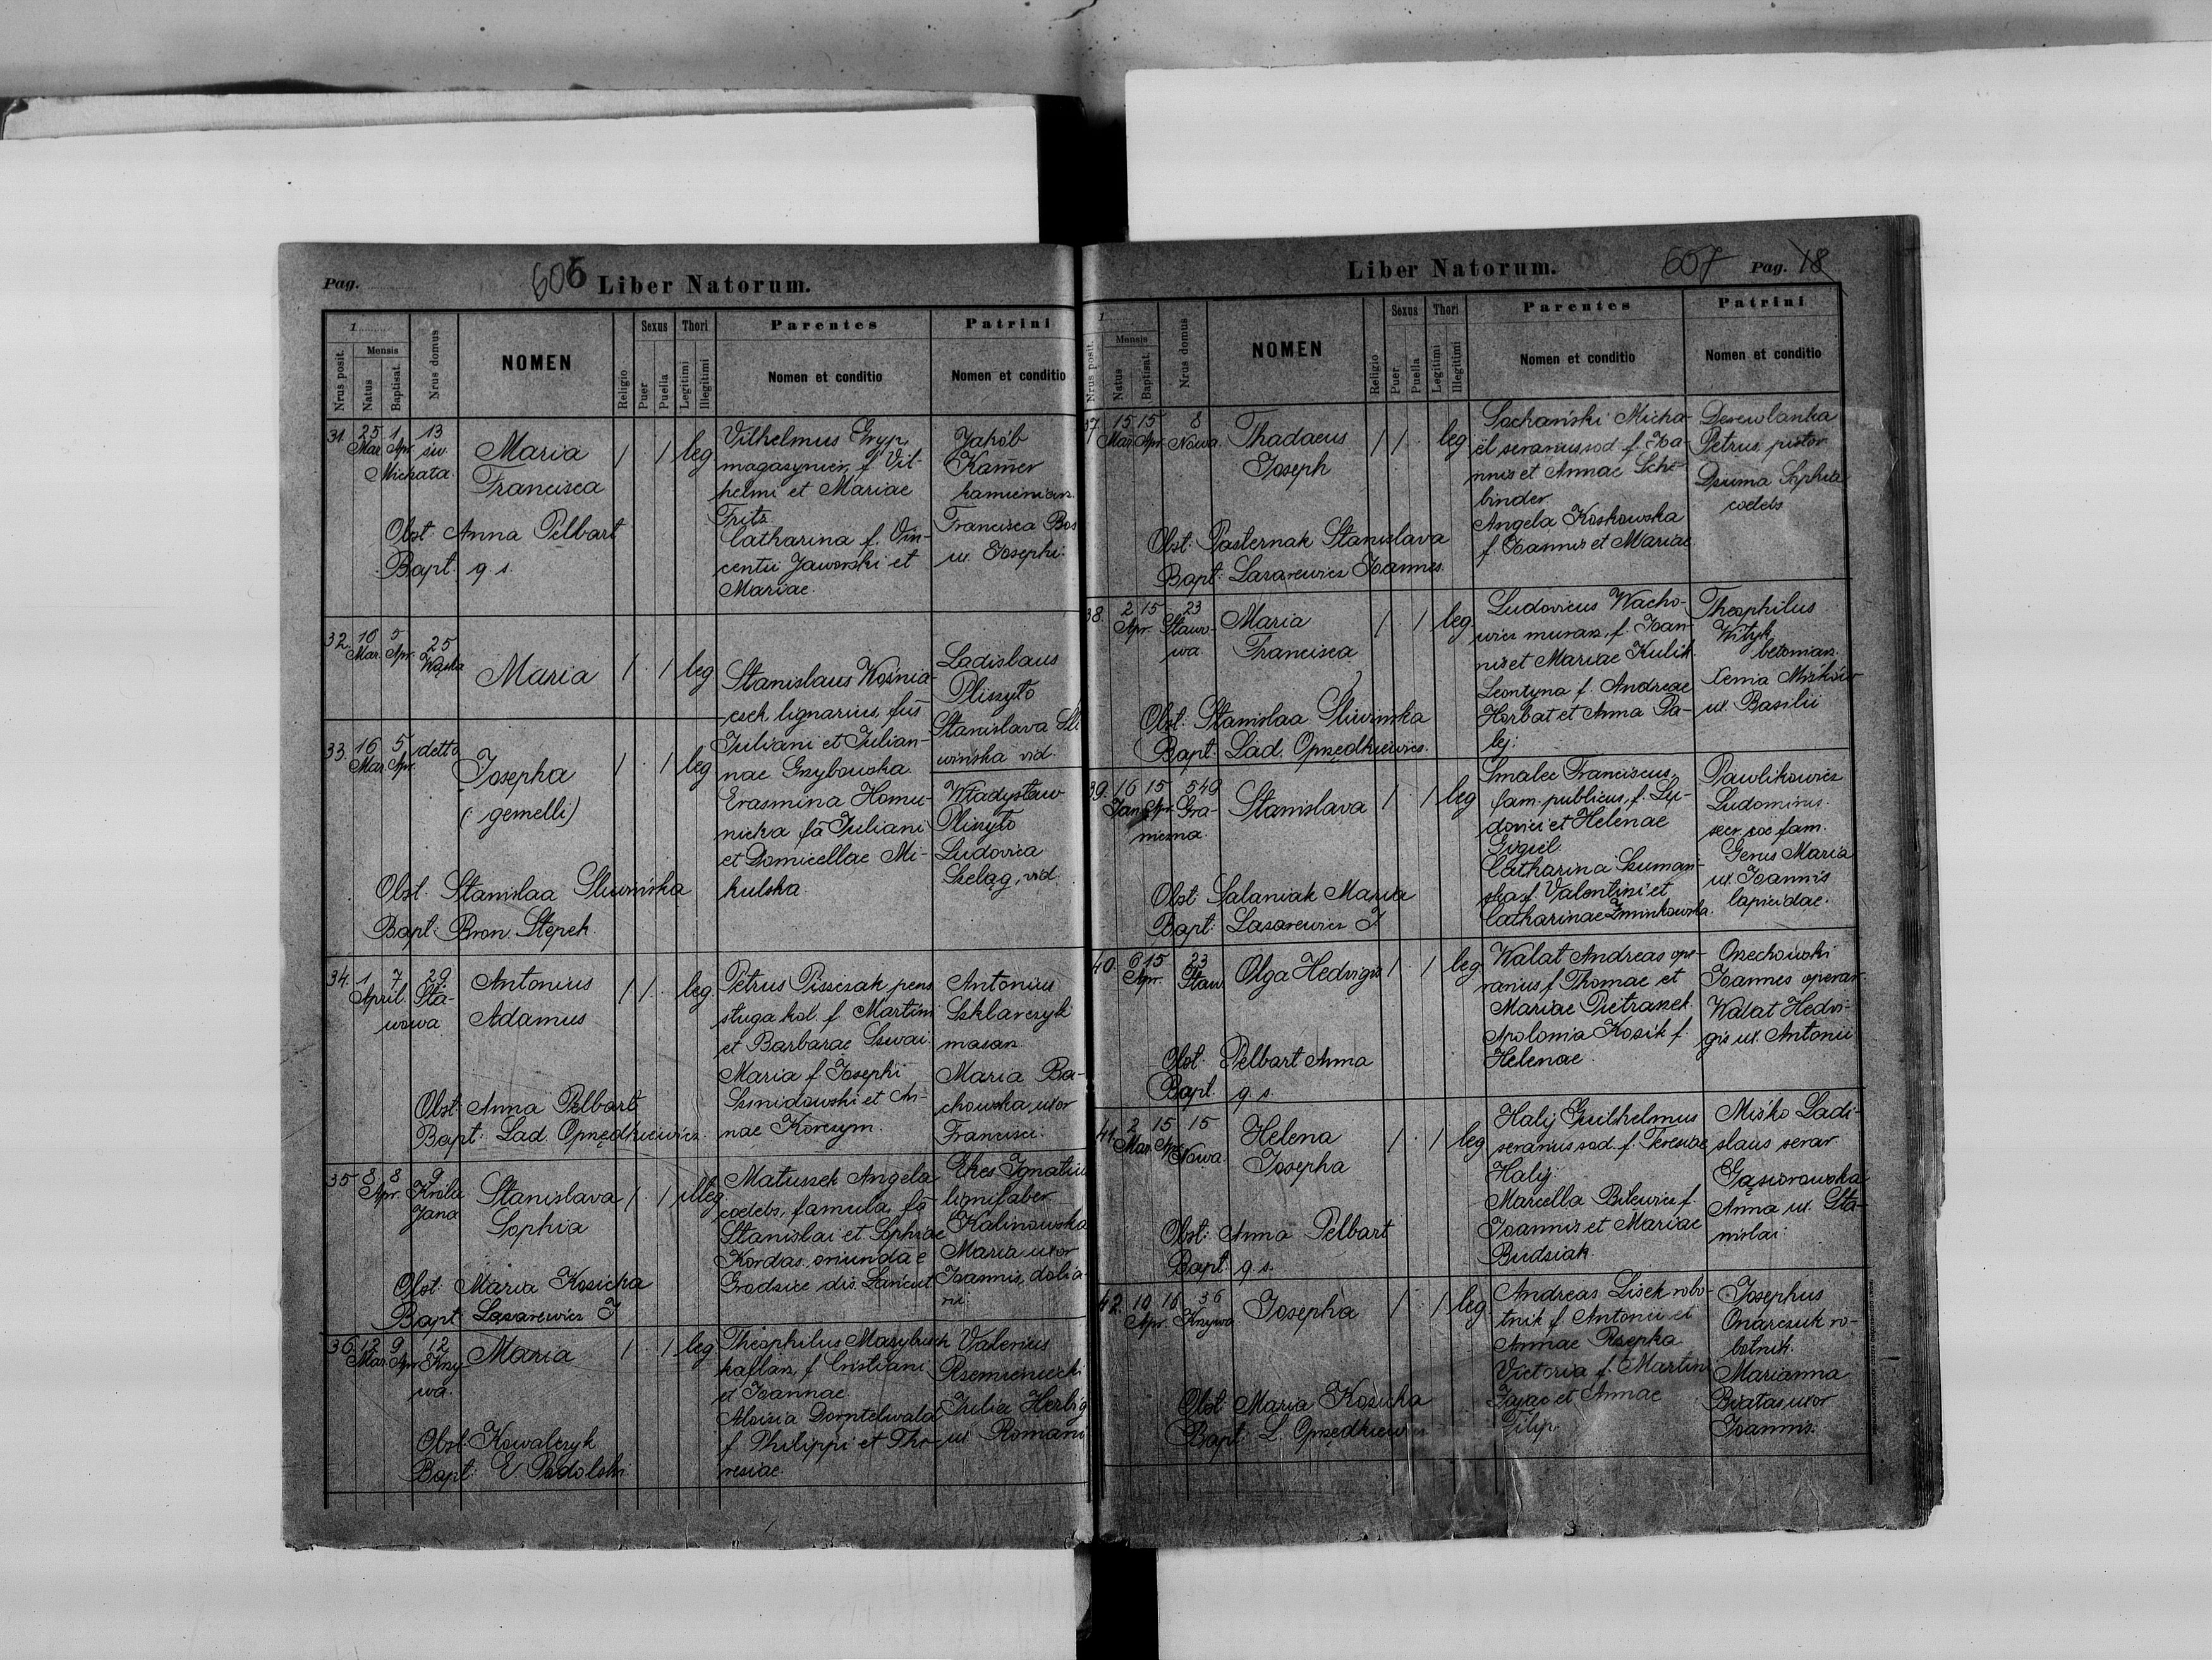 Pag.
606 Liber Natorum.
1
Nrus posit.
Mensis
Natus
Baptisat.
Nrus domus
NOMEN
Religio
Sexus
Puer
Puella
Thori
Legitimi
Illegitimi
Parentes
Nomen et conditio
Patrini
Nomen et conditio
31. 25 Mar. 1 Apr. 13 św.
Michała
Maria
Francisca
1 1 leg
Obst. Anna Pelbart
Bapt. q. s.
Vilhelmus Gryp,
magazynier, f. Vil-
helmi et Mariae
Fritz
Catharina f. Vin-
centii Jaworski et
Mariae.
Jakób
Kamer
kamieniarz
Francisca Bos
ux. Josephi
32. 16 Mar. 5 Apr. 25
Wąska
Maria
1 1 leg
33. 16 Mar. 5 Apr. detto
Josepha
(: gemelli)
1 1 leg
Obst. Stanislaa Sliwińska
Bapt. Bron. Stepek.
Stanislaus Woźnia-
czek lignarius, fus
Juliani et Julian-
nae Grzybowska.
Erasmina Homu-
nicka fa Juliani
et Domicellae Mi-
kulska.
Ladislaus
Pliszyto
Stanislava Sli-
wińska vid.
Władysław
Pliszyto
Ludovica
Szeląg, vid.
34. 1 7 April. 29
Sta-
wowa
Antonius
Adamus
1 1 leg
Obst. Anna Pelbart
Bapt. Lad. Oprzędkiewicz.
Petrus Piszczak pens.
sługa kol. f. Martini
et Barbarae Szwai.
Maria f. Josephi
Szmidowski et An-
nae Korczym.
Antonius
Szklarczyk
masarz.
Maria Ba-
chowska, uxor
Francisci.
35 8 8 Apr. 9
Króla
Jana
Stanislava
Sophia
1 1 illeg
Obst. Maria Kosicka
Bapt. Lazarewicz J
Matuszek Angela
coelebs, famula, fa
Stanislai et Sophiae
Kordas, oriundae
Grodzice dis. Łańcut
Ekes Ignatius
lignifaber
Kalinowska
Maria uxor
Joannis, dolia-
rii.
36. 12 Mar. 9 Apr. 12
Krzy-
wa.
Maria
1 1 leg
Obst. Kowalczyk
Bapt: E Podolski
Theophilus Mazybrock
kaflarz, f. Cristiani
et Joannae
Aloisia Dorntelwald
f. Philippi et The-
resiae.
Valerius
Rzemieniecki
Julia Herbig
ux. Romani
Liber Natorum. 607 Pag. 18
1
Nrus posit.
Mensis
Natus
Baptisat.
Nrus domus
NOMEN
Religio
Sexus
Puer
Puella
Thori
Legitimi
Illegitimi
Parentes
Nomen et conditio
Patrini
Nomen et conditio
37. 15 Mar. 15 Apr. 8
Nowa.
Thadaeus
Joseph
1 1 leg
Obst: Pasternak Stanislava
Bapt: Lazarewicz Joannes.
Sochański Micha-
ël serarius sod. f. Joa-
nnis et Annae Sche-
binder
Angela Koskowska
f. Joannis et Mariae.
Derewlanka
Petrus, pistor
Dziuma Sophia
coelebs
38. 2 15 Apr. 23
Stawo-
wa
Maria
Francisca
1 1 leg
Obst: Stanislaa Sliwinska
Bapt: Lad. Oprzędkiewicz.
Ludovicus Wacho-
wicz murarz, f. Joan-
nis et Mariae Kulik
Leontyna f. Andreae
Horbat et Anna Pa-
lej.
Theophilus
Wityk
betoniarz.
Xenia Miśków
ux. Basilii
39. 16 Jan. 15 Apr. 549
Gra-
niczna.
Stanislava
1 1 leg
Obst: Salaniak Maria
Bapt: Lazarewicz J
Smalec Franciscus,
fam. publicus, f. Lu-
dovici et Helenae
Guguł.
Catharina Szumań-
ska f. Valentini et
Catharinae Zminkowska.
Pawlikowicz
Ludomirus.
secr. soc. fam.
Genus Maria
ux. Joannis
lapicidae.
40. 6 15 Apr. 23
Staw.
Olga Hedvigis
1 1 leg
Obst: Pelbart Anna
Bapt. q. s.
Walat Andreas ope-
rarius f. Thomae et
Mariae Pietraszek
Apolonia Kosik f.
Helenae.
Orzechowski
Joannes operar.
Walat Hedvi-
gis ux. Antonii
41. 2 Mar. 15 Apr. 15
Nowa.
Helena
Josepha
1 1 leg
Obst: Anna Pelbart
Bapt: q. s.
Halij Guilhelmus
serarius sod. f. Teresiae
Halij.
Marcella Bilewicz f.
Joannis et Mariae
Budziak
Miśko Ladi-
slaus serar.
Gąsiorowska
Anna ux. Sta-
nislai.
42. 10 16 Apr. 36
Krzywa
Josepha
1 1 leg
Obst. Maria Kosicka
Bapt. L. Oprzędkiewicz
Andreas Lisek robo-
tnik f. Antonii et
Annae Rzepka
Victoria f. Martini
Zając et Annae
Filip.
Josephus
Onarczuk ro-
botnik.
Marianna
Białas uxor
Joannis.